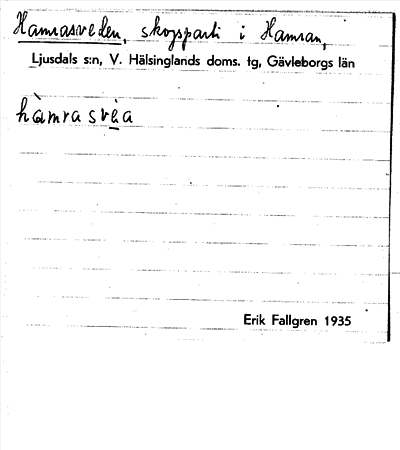 Hamrasveden, skogsparti i Hamran,
Ljusdals s:n, V. Hälsinglands doms. tg, Gävleborgs län
hàmrasvèa
Erik Fallgren 1935